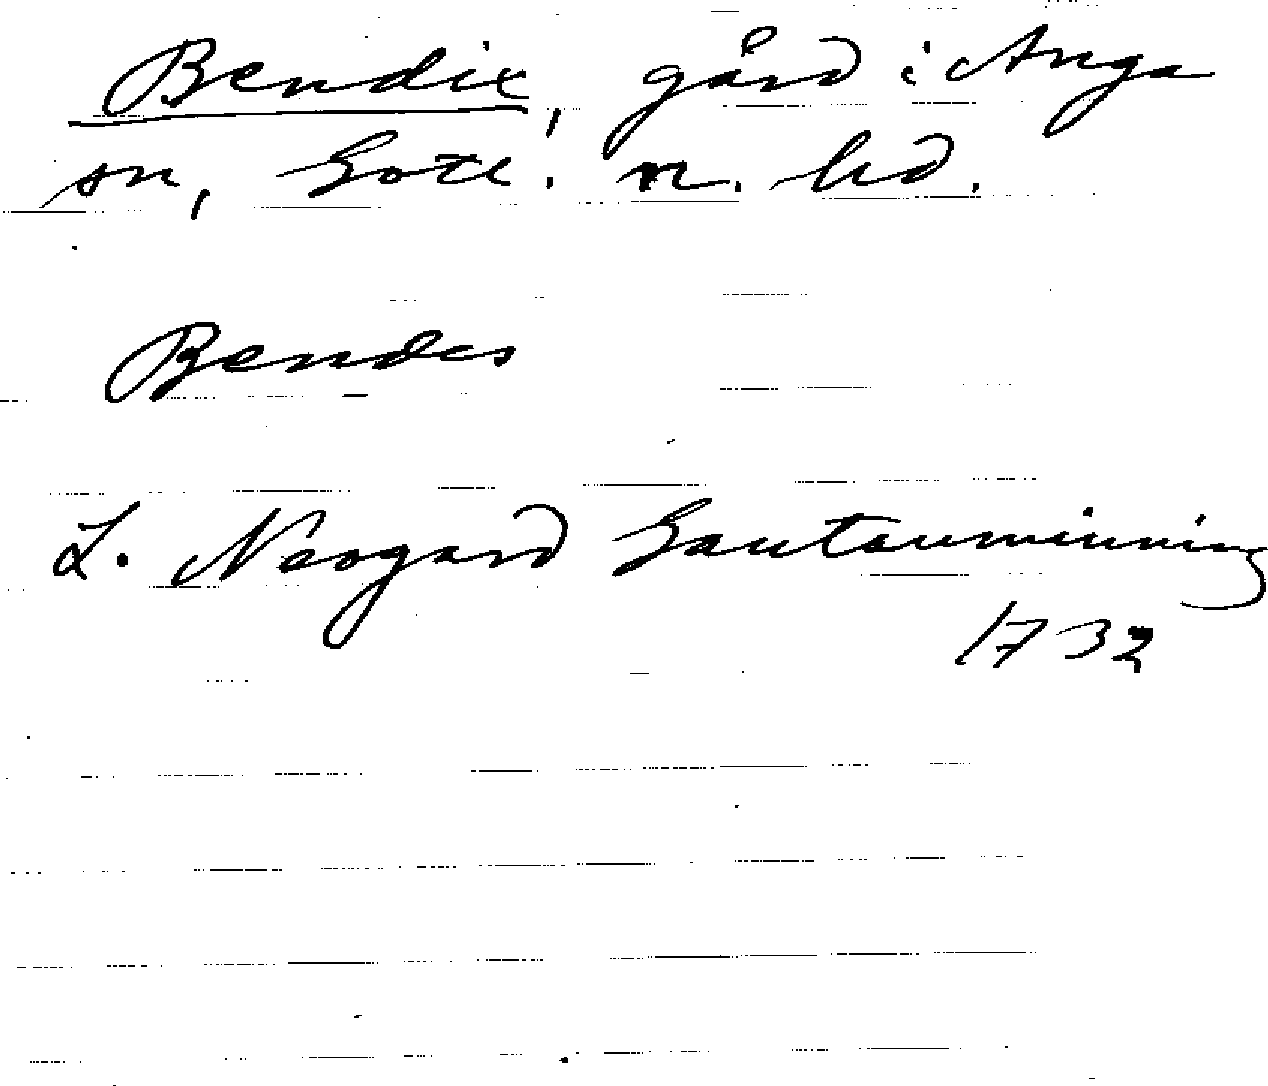 Bendix, gård i Anga
sn, Gotl. n. hd.
Bendes
L. Neogard Gautauminning
1732